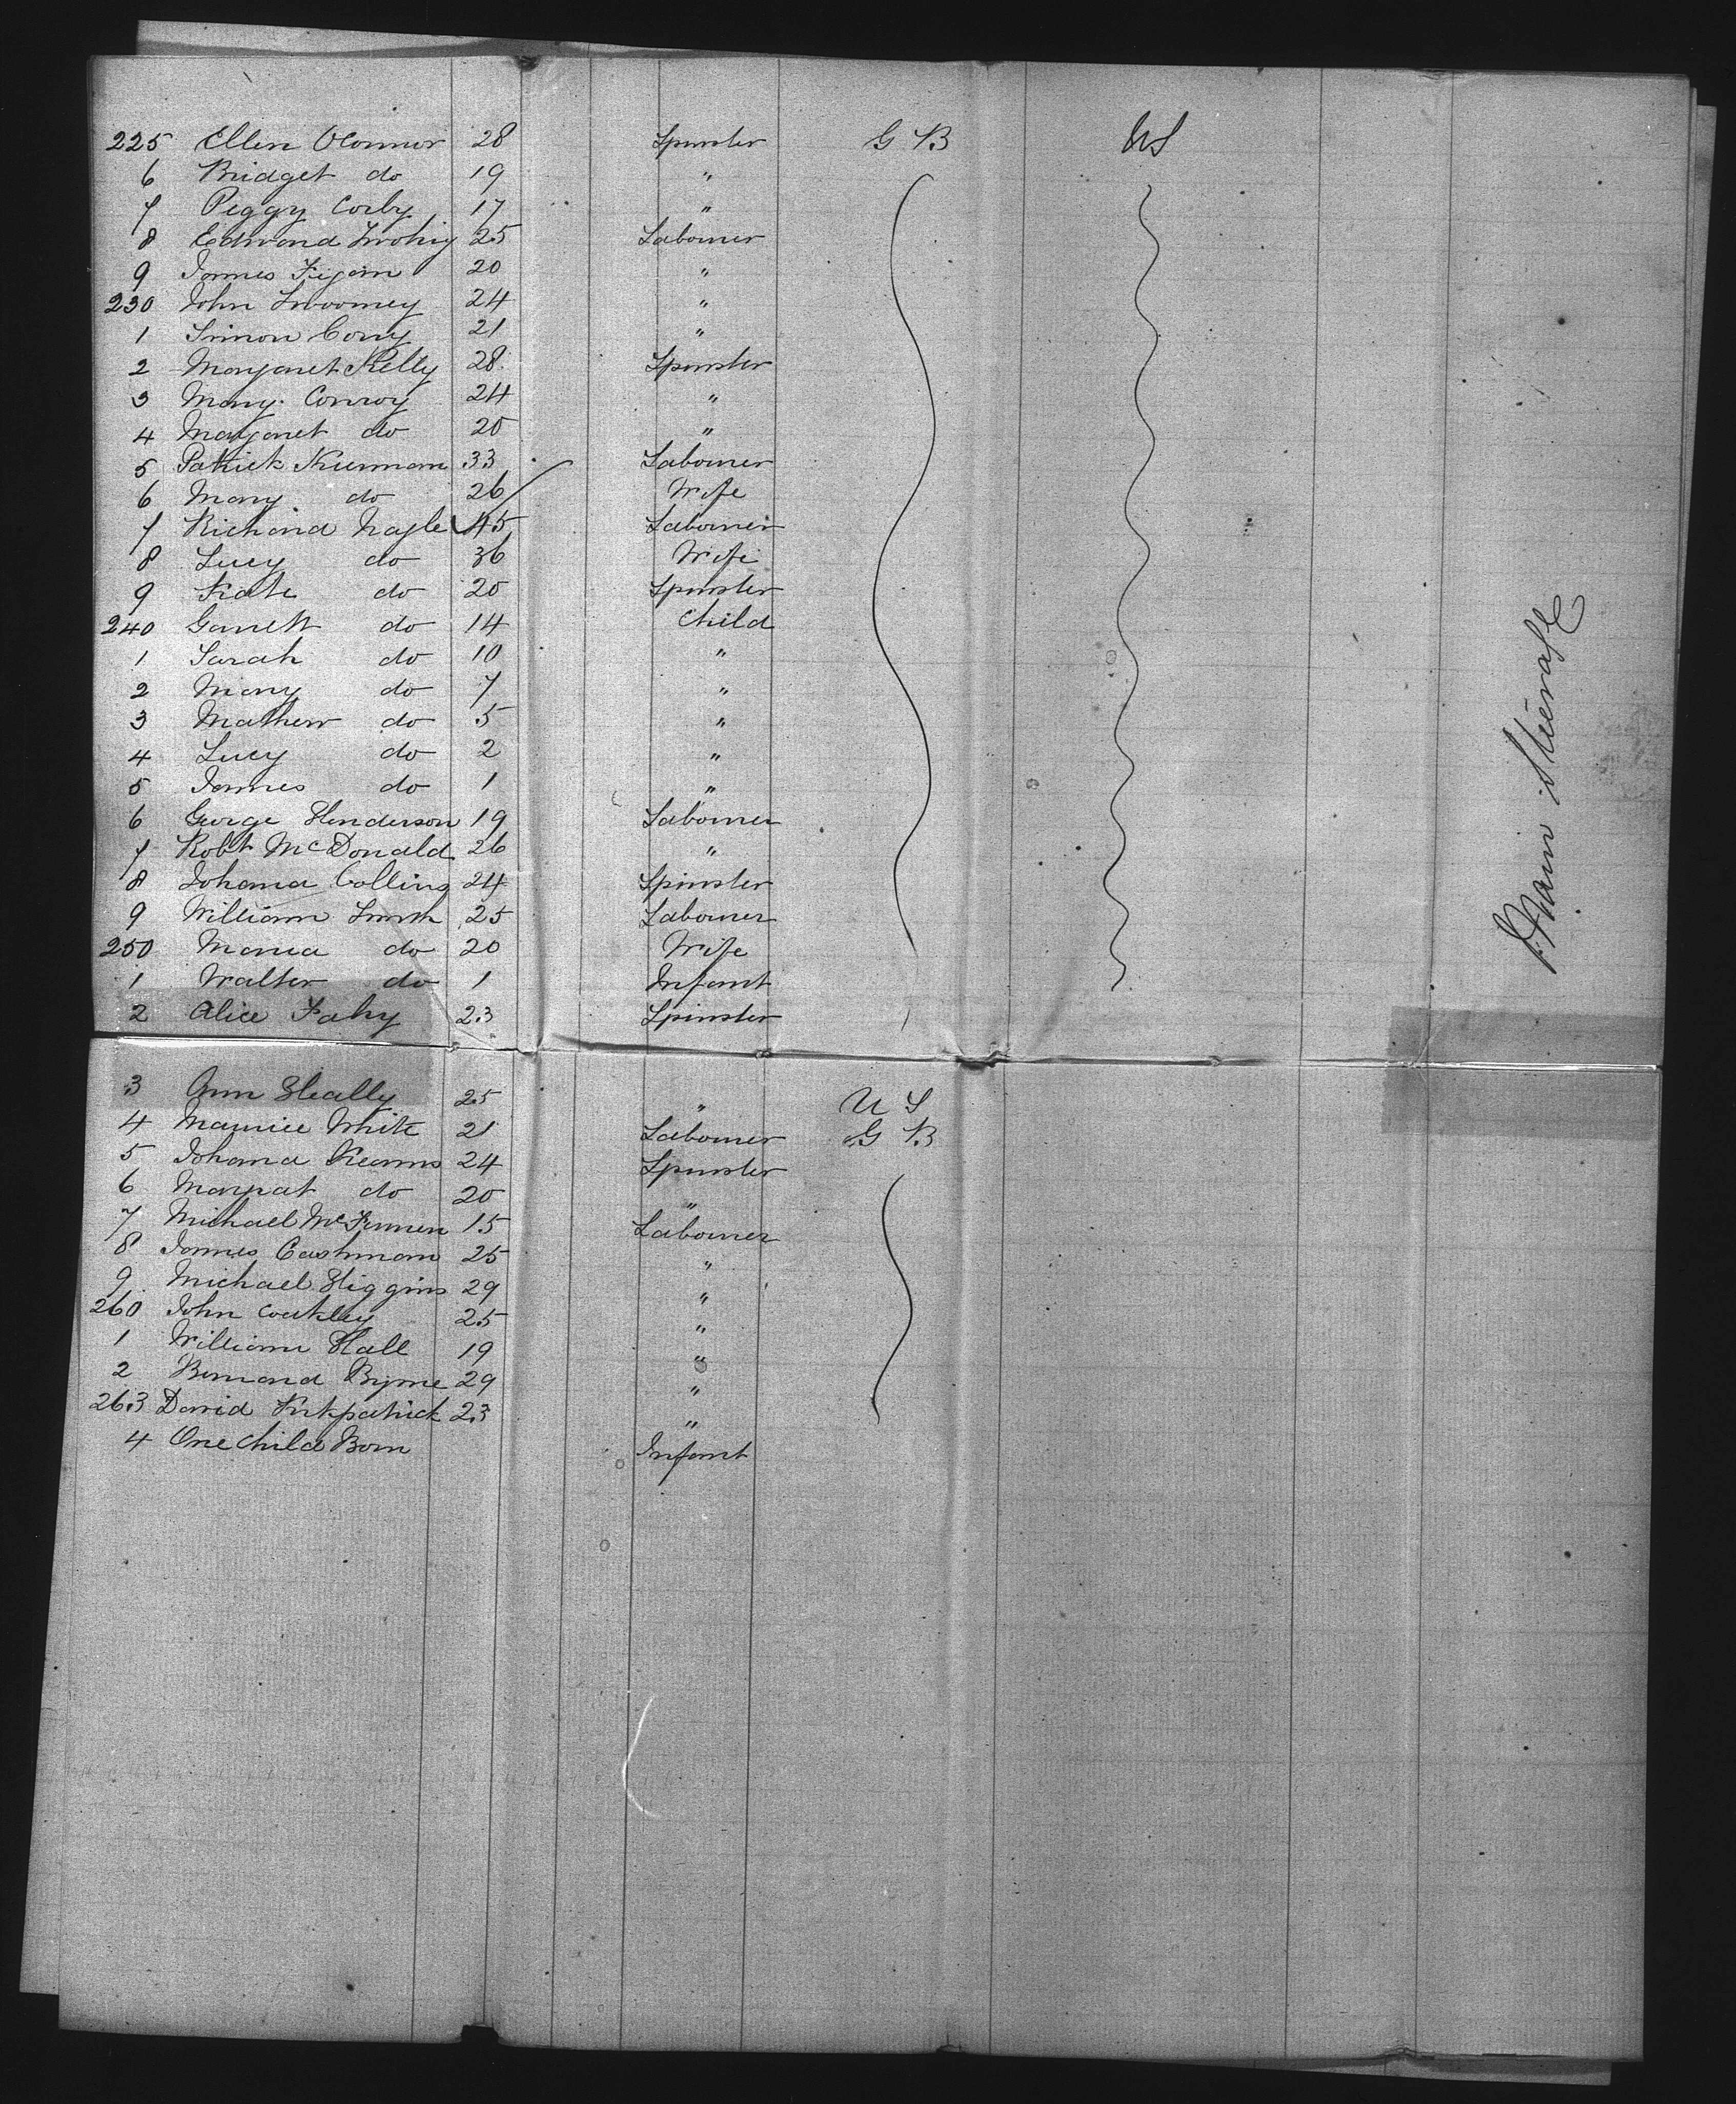 225 Ellen OConnor 28 Spinster G B US
6 Bridget do 19 "
7 Peggy Corby 17 "
8 Edmond Twohig 25 Labourer
9 James Fegan 20 "
230 John Twoomey 24 "
1 Simon Cony 21 "
2 Margaret Kelly 28 Spinster
3 Mary Conroy 24 "
4 Margaret do 20 "
5 Patrick Kiernan 33 Labourer
6 Mary do 26 Wife
7 Richard Nagle 45 Labourer
8 Lucy do 36 Wife
9 Kate do 20 Spinster
240 Garrett do 14 Child
1 Sarah do 10 "
2 Mary do 7 "
3 Mathew do 5 "
4 Lucy do 2 "
5 James do 1 "
6 George Henderson 19 Labourer
7 Robt McDonald 26 "
8 Johana Collins 24 Spinster
9 William Smith 25 Labourer
250 Maria do 20 Wife
1 Walter do 1 Infant
2 Alice Fahy 23 Spinster
3 Ann Heally 25 " U S
4 Maurice White 21 Labourer G B
5 Johana Kearns 24 Spinster
6 Margat do 20 "
7 Michael 15 Labourer
8 James Cashman 25 "
9 Michael Higgins 29 "
260 John Coakley 25 "
1 William Hall 19 "
2 Bernard Byrne 29 "
263 David Kirkpatrick 23 "
4 One Child Born Infant
Main Steerage